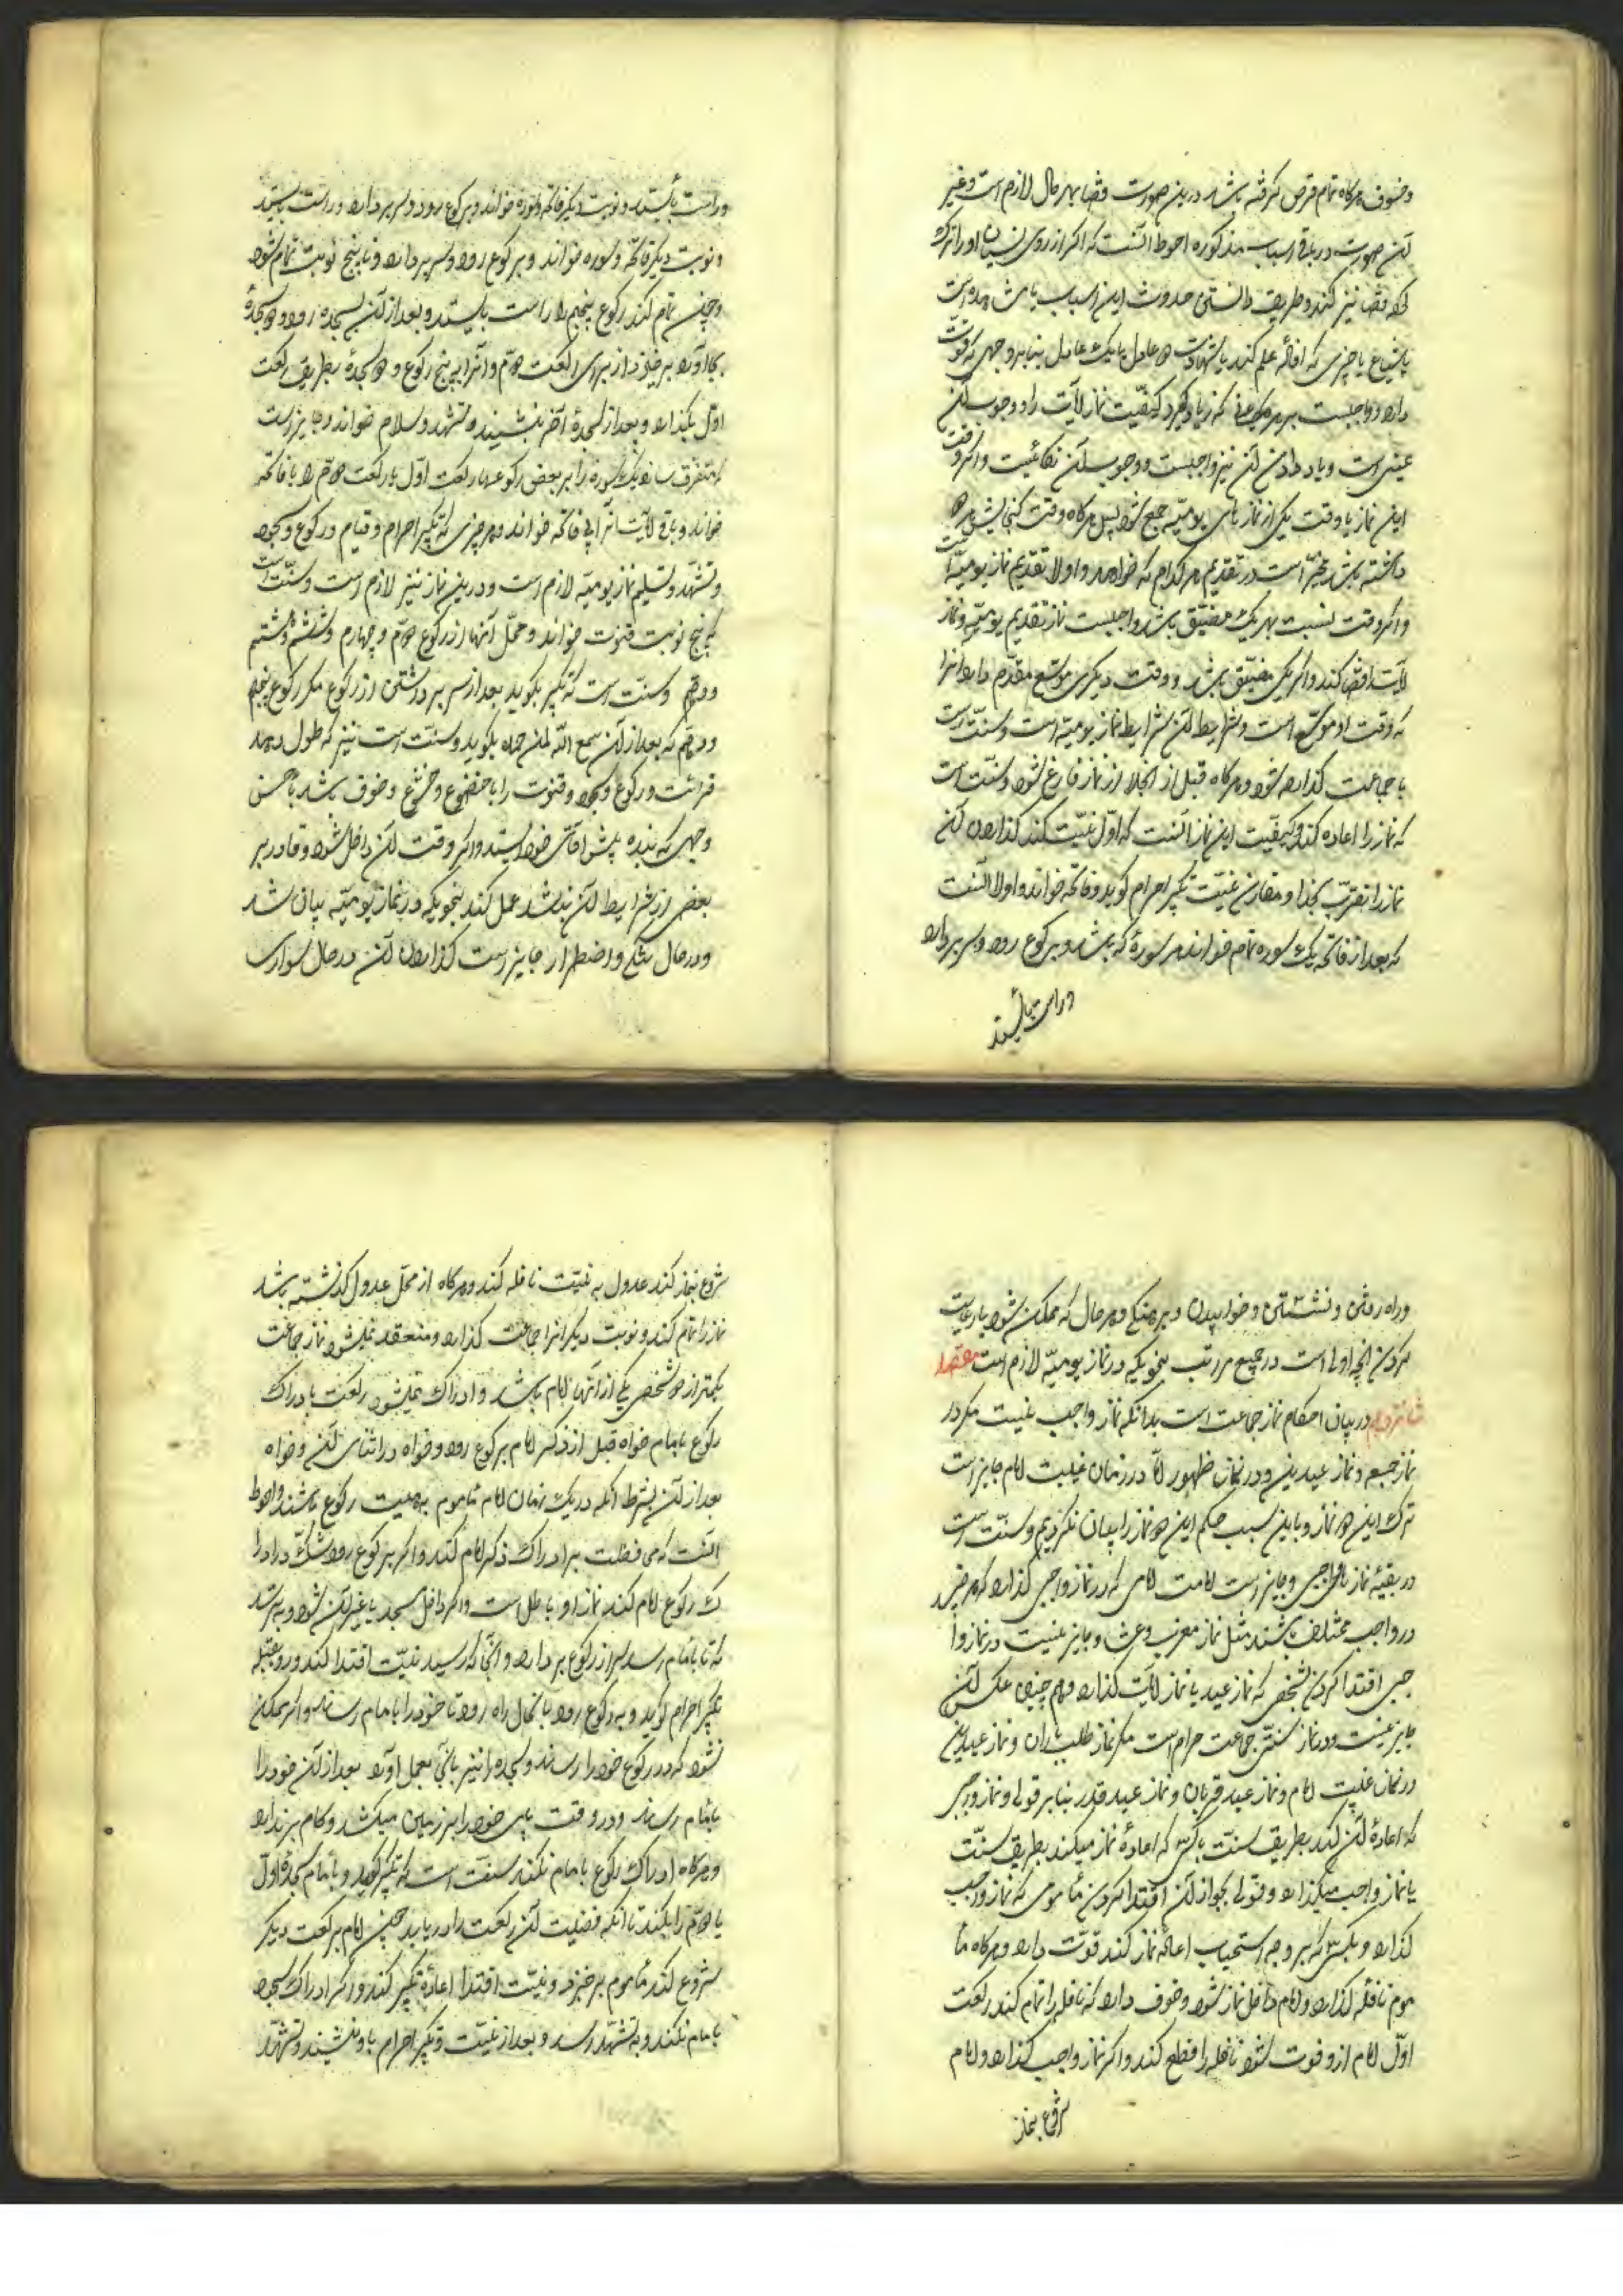 وخسوف هرکاه تمام قرص کرفته باشد درین صورت قضا بهر حال لازم است وغیر
آن صورت در باقی اسباب مذکوره احوط آنست که اکر از روی نسیان او را ترک
کند قضا نیز کند وطریق دانستن حدوث این اسباب یا مشاهده است
یا شیاع یا چیزی که افاده علم کند یا شهادت دو عادل یا یک عادل بنابر وجهی که قوت
دارد وواجبست بر هر مکلفی که یاد کیرد کیفیت نماز آیات را ووجوب آن
عینی است ویاد دادن آن نیز واجبست ووجوب آن کفائیست واکر وقت
این نماز با وقت یکی از نمازهای یومیّه جمع شود پس هرکاه وقت کنجایش هر دو
داشته باشد مخیّر است در تقدیم هر کدام که خواهد واولا تقدیم نماز یومیّه است
واکر وقت نسبت بهر یک مضیّق باشد واجبست نماز تقدیم یومیّه ونماز
آیات را قضا کند واکر یکی مضیّق باشد ووقت دیکری موسّع مقدّم دارد آنرا
که وقت او موسّع است وشرایط آن شرایط نماز یومیّه است وسنّت است
با جماعت کذارده شود وهرکاه قبل از انجلا از نماز فارغ شود وسنّت است
که نماز را اعاده کند وکیفیّت این نماز آنست که اوّل نیّت کند کذاردن آن
نماز را تقرّب بخدا ومقارن نیّت تکبیر احرام کوید وفاتحه خواند واولا آنست
که بعد از فاتحه یک سوره تمام خواند هر سورهٔ که باشد وبرکوع رود وسر بردارد
وراست بایستد
وراست بایستد ونوبت دیکر فاتحه وسوره خواند وبرکوع رود وسر بردارد وراست بایستد
ونوبت دیکر فاتحه وسوره خواند وبرکوع رود وسر بردارد وتا پنج نوبت تمام شود
وچون تمام کند رکوع پنجم را راست بایستد وبعد از آن بسجده رود ودو سجدهٔ
بجا آورد برخیزد از برای رکعت دوّم وآنرا به پنج رکوع ودو سجدهٔ بطریق رکعت
اوّل بکذارد وبعد از سجدهٔ آخر بنشیند وتشهد وسلام خواند وجایز است
که متفرق سازد یک سوره را بر بعض رکوعها رکعت اوّل یا رکعت دوّم را با فاتحه
خواند وباقی آیات را بی فاتحه خواند وهر چیزی که تکبیر احرام وقیام ورکوع وسجود
وتشهّد وتسلیم نماز یومیّه لازم است ودرین نماز نیز لازم است وسنّت است
که پنج نوبت قنوت خواند ومحلّ آنها از رکوع دوّم وچهارم وششم وهشتم
ودهم وسنّت است که تکبیر بکوید بعد از سر برداشتن از رکوع مکر رکوع پنجم
ودهم که بعد از آن سمع الله لمن حمده بکوید وسنّت است نیز که طول دهد
قرائت ورکوع وسجود وقنوت را با خضوع وخشوع وخوف باشد باحسن
وجهی که بنده پیش آقای خود ایستد واکر وقت آن داخل شود وقادر بر
بعض از شرایط آن نباشد عمل کند بنحویکه در نماز یومیّه بیان شد
ودر حال تنکی واضطرار جایز است کذاردن آن در حال سواری
وراه رفتن ونشستن وخوابیدن وبرهنکی وهر حال که ممکن شود با رعایت
کردن آنچه اولی است در جمیع مراتب بنحویکه در نماز یومیّه لازم است مقصد
شانزدهم در بیان احکام نماز جماعت است بدانکه نماز واجب نیست مکر در
نماز جمعه ونماز عیدین ودر زمان ظهور امّا در زمان غیبت امام جایز است
ترک این دو نماز وباین سبب حکم این دو نماز را بیان نکردیم وسنّت است
در بقیّه نماز واجبی وجایز است امامت امامی که در نماز واجبی کذارد که هر چند
در واجب مختلف باشند مثل نماز مغرب وعشا وجایز نیست در نماز وا
جبی اقتدا کردن شخصی که نماز عید یا نماز آیات کذارد وهم چنین عکس آن
جایز نیست ودر نماز سنّتی جماعت حرام است مکر نماز طلب باران ونماز عیدین
در زمان غیبت امام ونماز عید قربان ونماز عید غدیر بنابر قولی ونماز واجبی
که اعادهٔ آن کند بطریق سنّت با کسی که اعادهٔ نماز میکند بطریق سنّت
یا نماز واجب میکذارد وقولی بجواز آن اقتدا کردن مأمومی که نماز واجب
کذارد وبکسی که بر وجه استحباب اعاده نماز کند قوّت دارد وهرکاه مأ
موم نافله کذارد وامام داخل نماز شود وخوف دارد که نافله را تمام کند رکعت
اوّل امام ازو فوت شود نافله را قطع کند واکر نماز واجب کذارد وامام
شروع بنماز
شروع بنماز کند عدول به نیّت نافله کند وهرکاه از محلّ عدول کذشته باشد
نماز را تمام کند ونوبت دیکر آنرا جماعت کذارد ومنعقد نمیشود نماز جماعت
بکمتر از دو شخص یکی از آنها امام باشد وادراک نمیشود رکعت بادراک
رکوع با امام خواه قبل از ذکر امام برکوع رود وخواه در اثنای آن وخواه
بعد از آن بشرط آنکه در یک زمان امام مأموم بهیئت رکوع باشند واحوط
آنست که محافظت بر ادراک ذکر امام کند واکر برکوع رود وشک در ادرا
ک رکوع امام کند نماز او باطل است واکر داخل مسجد یا غیر آن شود وبترسد
که تا بامام رسد سر از رکوع بردارد وآنجا که رسید نیّت اقتدا کند ورو بقبله
تکبیر احرام کوید وبرکوع رود با آنحال راه رود تا خود را بامام رساند واکر ممکن
نشود که در رکوع خود را رساند وسجده را نیز بآنجا بعمل آورد بعد از آن خود را
بامام رساند ودر وقت پای خود را بر زمین میکشد وکام برندارد
وهرکاه ادراک رکوع بامام نکند سنّت است که تکبیر کوید وبا امام سجدهٔ اوّل
یا دوّم را بکند تا آنکه فضیلت آن رکعت را دریابد چون امام برکعت دیکر
شروع کند مأموم برخیزد ونیّت اقتدا اعادهٔ تکبیر کند واکر ادراک سجود
بامام نکند وبه تشهّد رسد وبعد از نیّت وتکبیر احرام با او بنشیند وتشهّد